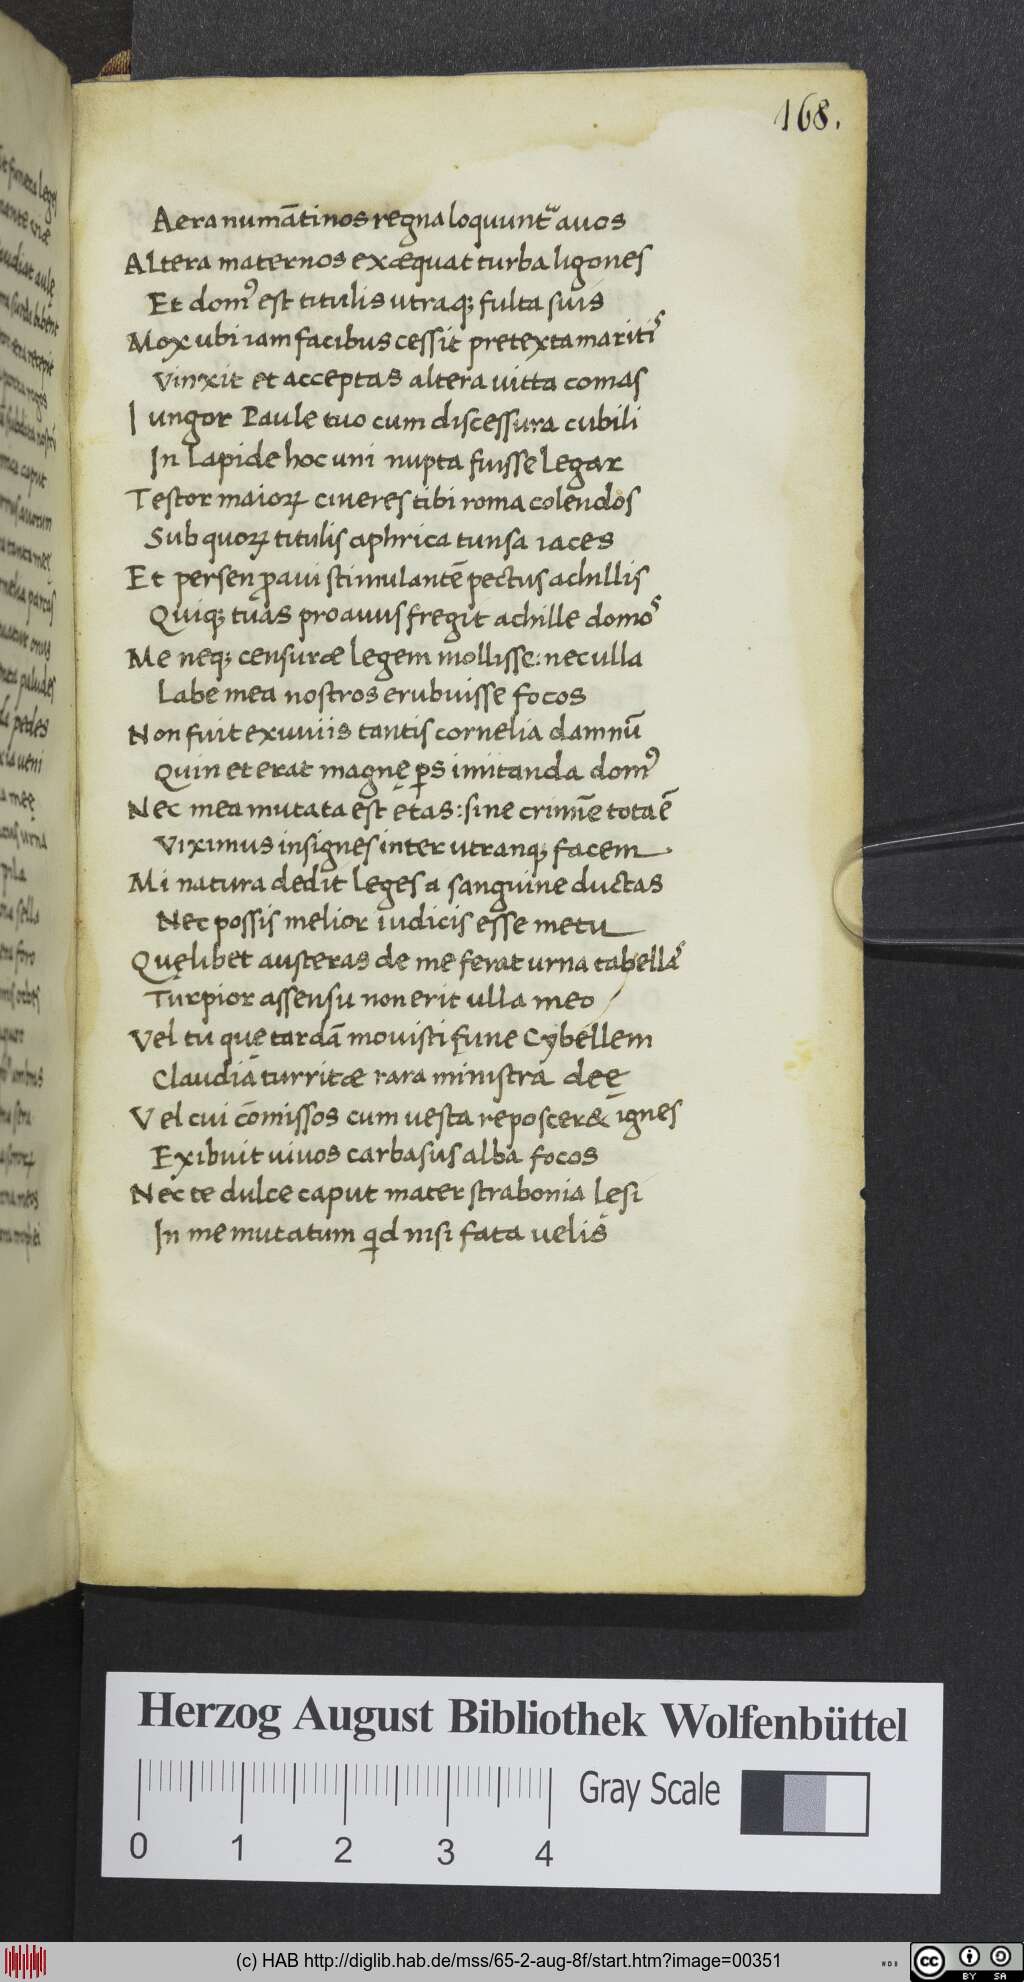 168.
Aera numātinos regna loquunt᷑ auos
Altera maternos exæquat turba ligones
Et domꝰ est titulis utraqꝫ fulta suis
Mox ubi iam facibus cessit pretexta maritiˢ
Vinxit et acceptas altera uitta comas
Iungor Paule tuo cum discessura cubili
In lapide hoc uni nupta fuisse legar
Testor maioꝝ cineres tibi roma colendos
Sub quoꝝ titulis aphrica tunsa iaces
Et persen ꝓaui stimulantē pectus achillis
Quiqꝫ tuas proauus fregit achille domoˢ
Me neqꝫ censuræ legem mollisse: nec ulla
Labe mea nostros erubuisse focos
Non fuit exuuiis tantis cornelia damnū
Quin et erat magnę ꝑs imitanda domꝰ
Nec mea mutata est ętas: sine crimīe tota ē
Viximus insignes inter utranqꝫ facem.
Mi natura dedit leges a sanguine ductas
Nec possis melior iudicis esse metu
Quęlibet austeras de me ferat urna tabellaˢ
Turpior assensu non erit ulla meo
Vel tu quę tardā mouisti fune Cybellem
Claudia turritæ rara ministra deę
Vel cui cōmissos cum uesta reposcer& ignes
Exibuit uiuos carbasus alba focos
Nec te dulce caput mater strabonia lęsi
In me mutatum qd nisi fata uelis
Herzog August Bibliothek Wolfenbüttel
Gray Scale
0 1 2 3 4
(c) HAB http://diglib.hab.de/mss/65-2-aug-8f/start.htm?image=00351
WDB
cc BY SA